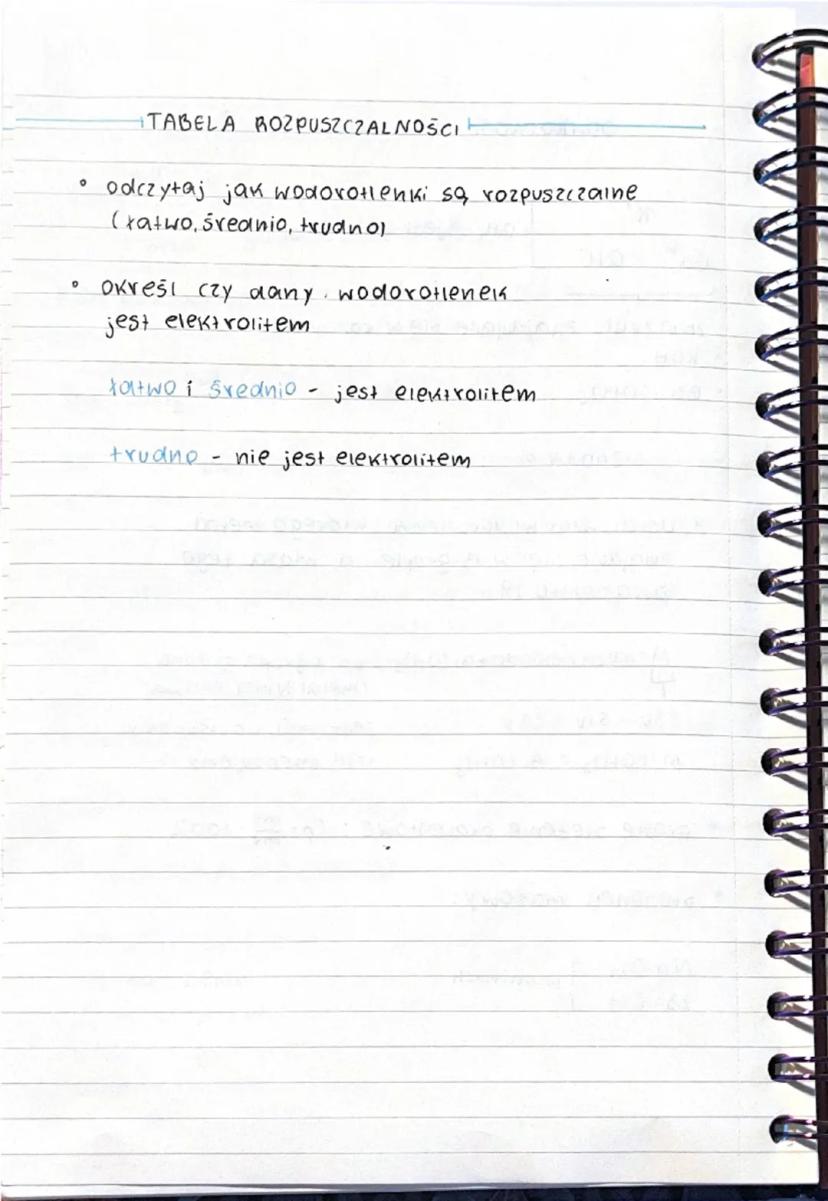 TABELA ROZPUSZCZALNOŚCI
• odczytaj jak wodorotlenki są rozpuszczalne
(łatwo, średnio, trudno)
• określ czy dany wodorotlenek
jest elektrolitem
łatwo i średnio - jest elektrolitem
trudno - nie jest elektrolitem